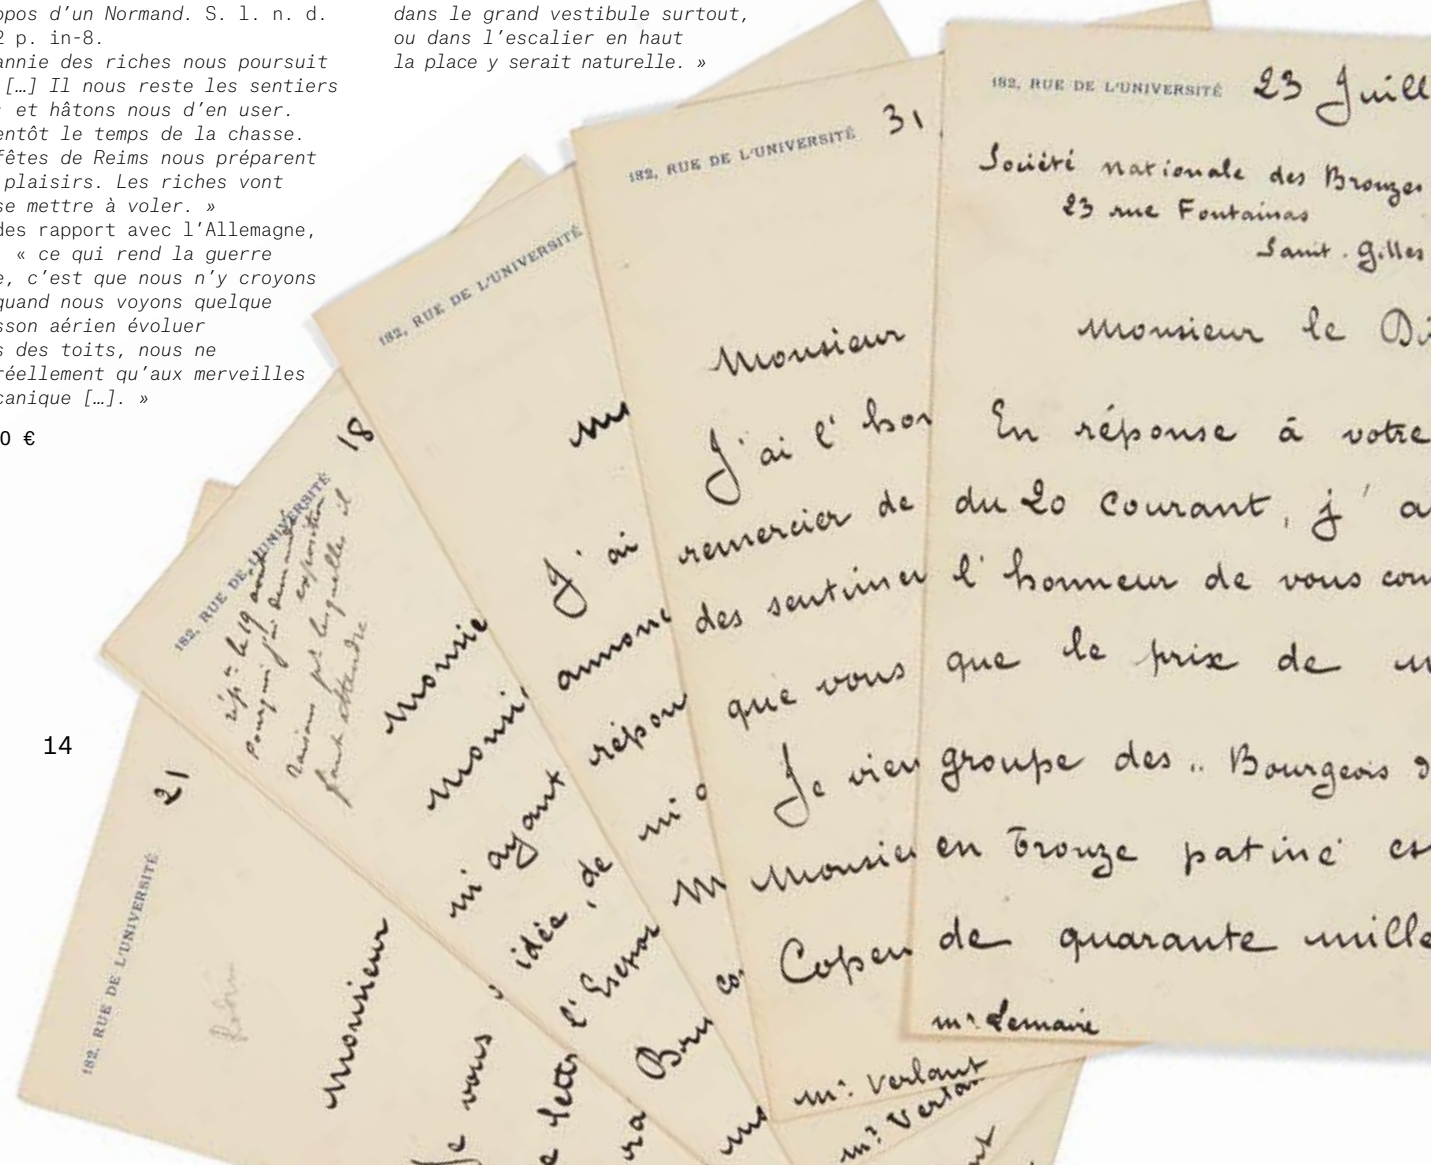 opos d’un Normand. S. l. n. d.
2 p. in-8.
annie des riches nous poursuit
[…] Il nous reste les sentiers
et hâtons nous d’en user.
entôt le temps de la chasse.
fêtes de Reims nous préparent
plaisirs. Les riches vont
se mettre à voler. »
des rapport avec l’Allemagne,
« ce qui rend la guerre
e, c’est que nous n’y croyons
quand nous voyons quelque
sson aérien évoluer
s des toits, nous ne
réellement qu’aux merveilles
canique […]. »
0 €
14
dans le grand vestibule surtout,
ou dans l’escalier en haut
la place y serait naturelle. »
182, RUE DE L'UNIVERSITÉ
21
Monsieur
Je vous
182, RUE DE L'UNIVERSITÉ
18
rép. le 19 août
Pourquoi j'ai demandé
exposition
raisons pr lesquelles il
faut attendre
Monsie
Monsi
m'ayant
idée, de
l'Escaut
e lettr
182, RUE DE L'UNIVERSITÉ
J'ai
annonc
répon
Bru
182, RUE DE L'UNIVERSITÉ
31
Monsieur
J'ai l'hon
remercier de
des sentimen
que vous
Je vien
Monsieu
Copen
mr. Verlant
mr. Verlan
182, RUE DE L'UNIVERSITÉ
23 Juill
Société nationale des Bronzes
23 rue Fontainas
Saint-Gilles
Monsieur le Di
En réponse à votre
du 20 courant, j'a
l'honneur de vous com
que le prix de
groupe des „ Bourgeois d
en bronze patiné es
de quarante mille
mr. Lemaire